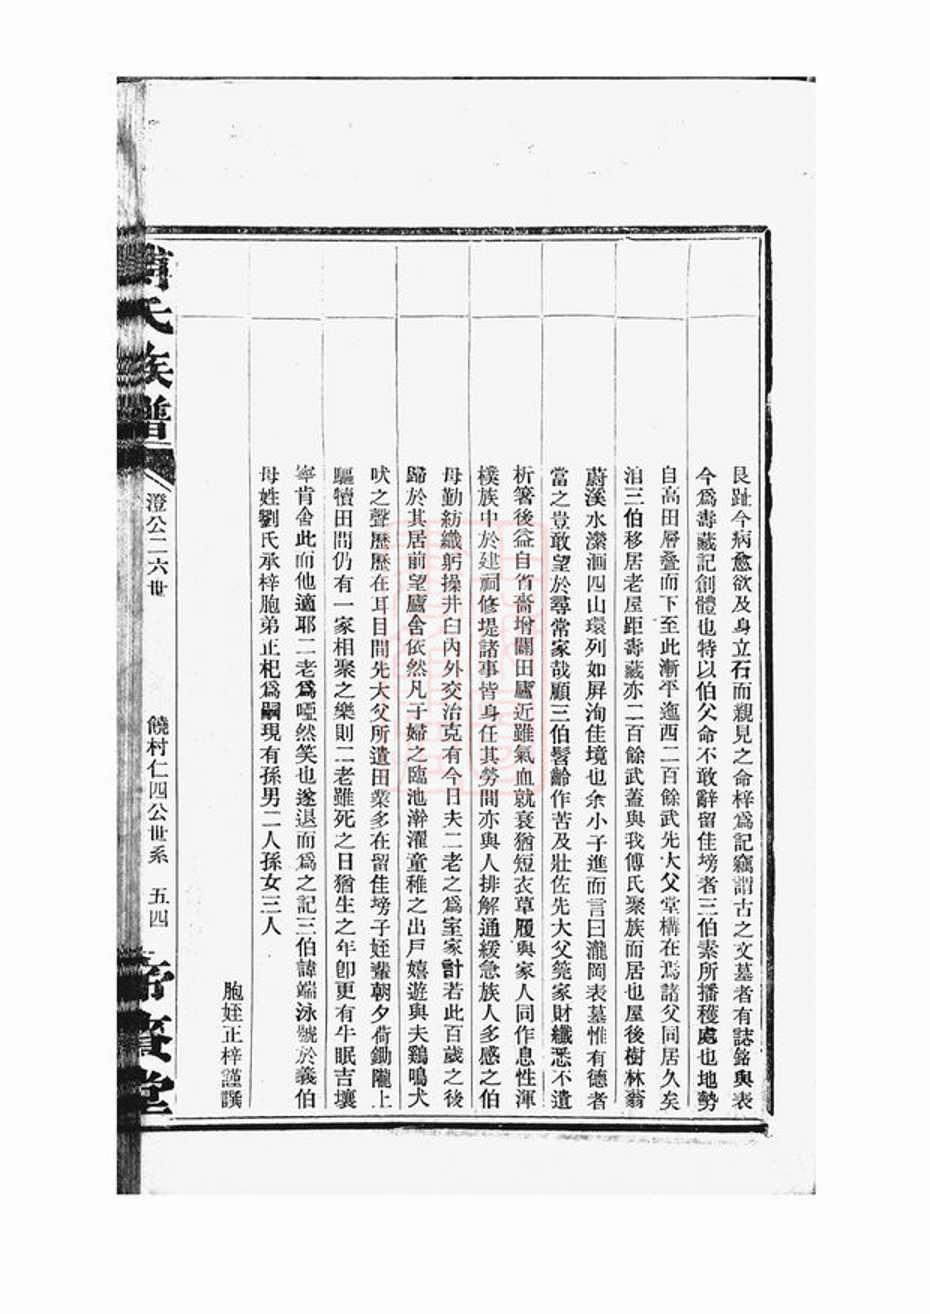 艮趾今病愈欲及身立石而親見之命梓爲記竊謂古之文墓者有誌銘與表
今爲壽藏記創體也特以伯父命不敢辭留佳塝者三伯素所播穫處也地勢
自高田層叠而下至此漸平迤西二百餘武先大父堂構在焉諸父同居久矣
洎三伯移居老屋距壽藏亦二百餘武蓋與我傅氏聚族而居也屋後樹林蓊
蔚溪水瀠洄四山環列如屏洵佳境也余小子進而言曰瀧岡表墓惟有德者
當之豈敢望於尋常家哉顧三伯髫齡作苦及壯佐先大父筦家財纖悉不遺
析箸後益自省嗇增闢田廬近雖氣血就衰猶短衣草履與家人同作息性渾
樸族中於建祠修堤諸事皆身任其勞間亦與人排解通緩急族人多感之伯
母勤紡織躬操井臼內外交治克有今日夫二老之爲室家計若此百歲之後
歸於其居前望廬舍依然凡子婦之臨池澣濯童稚之出戶嬉遊與夫鷄鳴犬
吠之聲歷歷在耳目間先大父所遺田業多在留佳塝子姪輩朝夕荷鋤隴上
驅犢田間仍有一家相聚之樂則二老雖死之日猶生之年卽更有牛眠吉壤
寧肯舍此而他適耶二老爲啞然笑也遂退而爲之記三伯諱端泳號於義伯
母姓劉氏承梓胞弟正杞爲嗣現有孫男二人孫女三人
胞姪正梓謹譔
氏族譜
澄公二六世
饒村仁四公世系 五四
堂